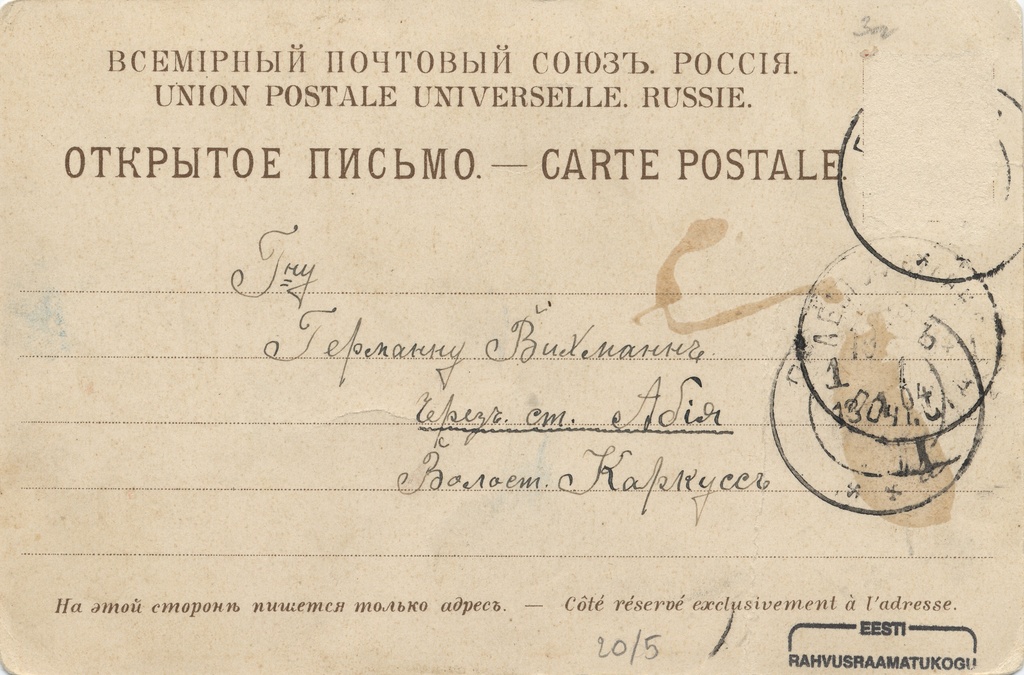 ВСЕМІРНЫЙ ПОЧТОВЫЙ СОЮЗЪ. РОССІЯ.
UNION POSTALE UNIVERSELLE. RUSSIE.
ОТКРЫТОЕ ПИСЬМО. — CARTE POSTALE.
Гну
Германну Вихманнъ
Черезъ. ст. Абія
Волост. Каркуссъ
На этой сторонѣ пишется только адресъ. — Côté réservé exclusivement à l'adresse.
20/5
EESTI
RAHVUSRAAMATUKOGU